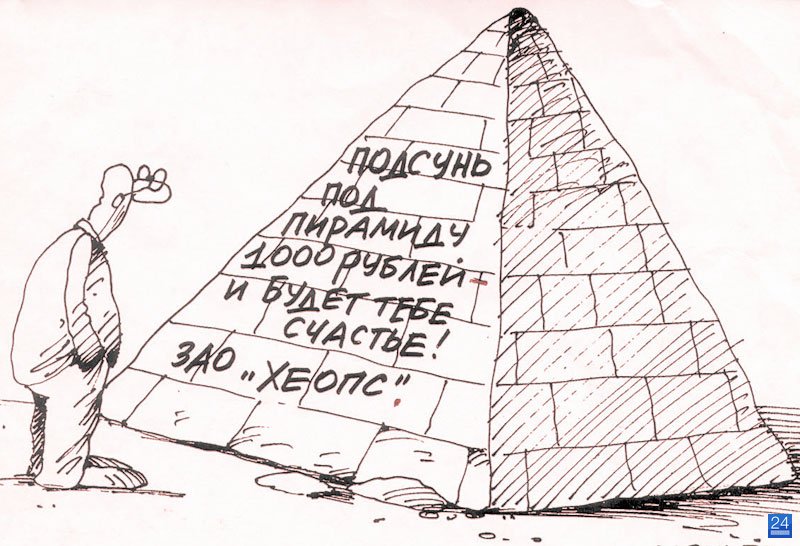 ПОДСУНЬ
ПОД
ПИРАМИДУ
1000 РУБЛЕЙ -
И БУДЕТ ТЕБЕ
СЧАСТЬЕ!
ЗАО „ХЕОПС".
24